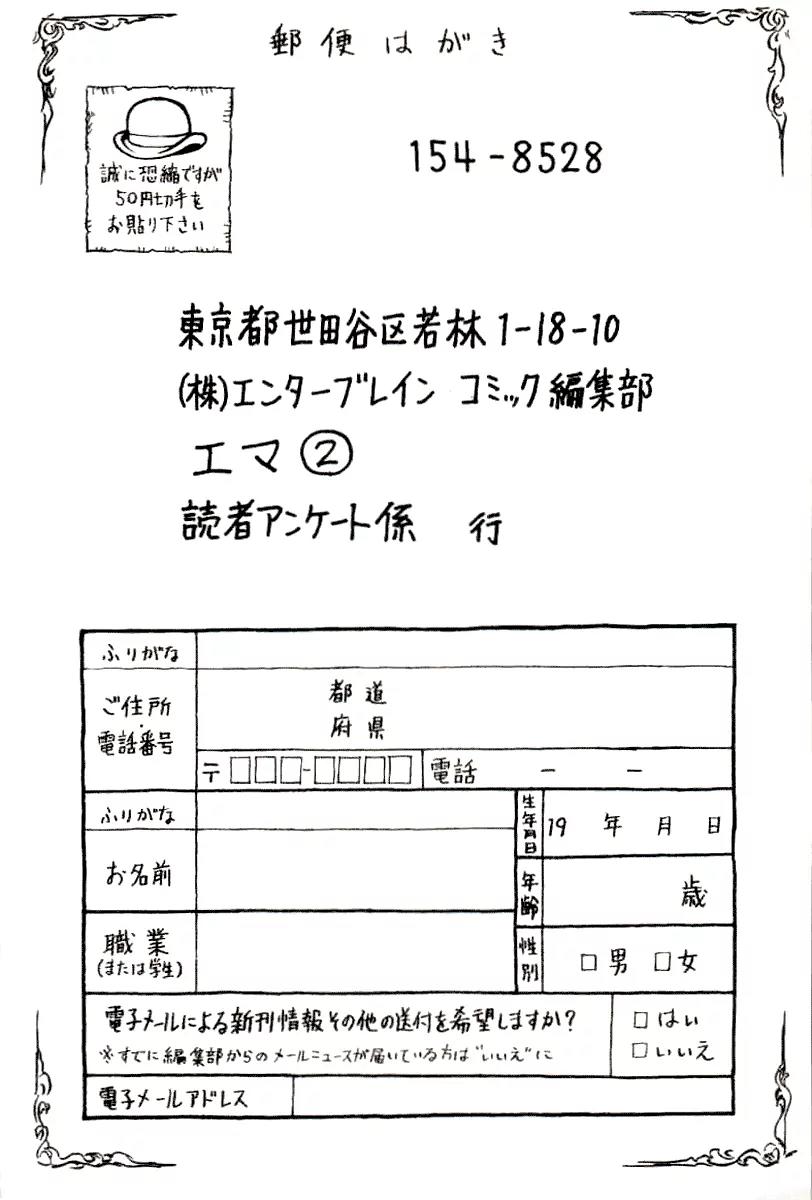 郵便はがき
誠に恐縮ですが
50円切手を
お貼り下さい
154-8528
東京都世田谷区若林1-18-10
(株)エンターブレイン コミック編集部
エマ②
読者アンケート係 行
ふりがな
ご住所・電話番号
都道
府県
〒□□□-□□□□ 電話 - -
ふりがな
お名前
生年月日 19 年 月 日
年齢 歳
職業
(または学生)
性別 □男 □女
電子メールによる新刊情報その他の送付を希望しますか?
※すでに編集部からのメールニュースが届いている方は"いいえ"に
□はい
□いいえ
電子メールアドレス